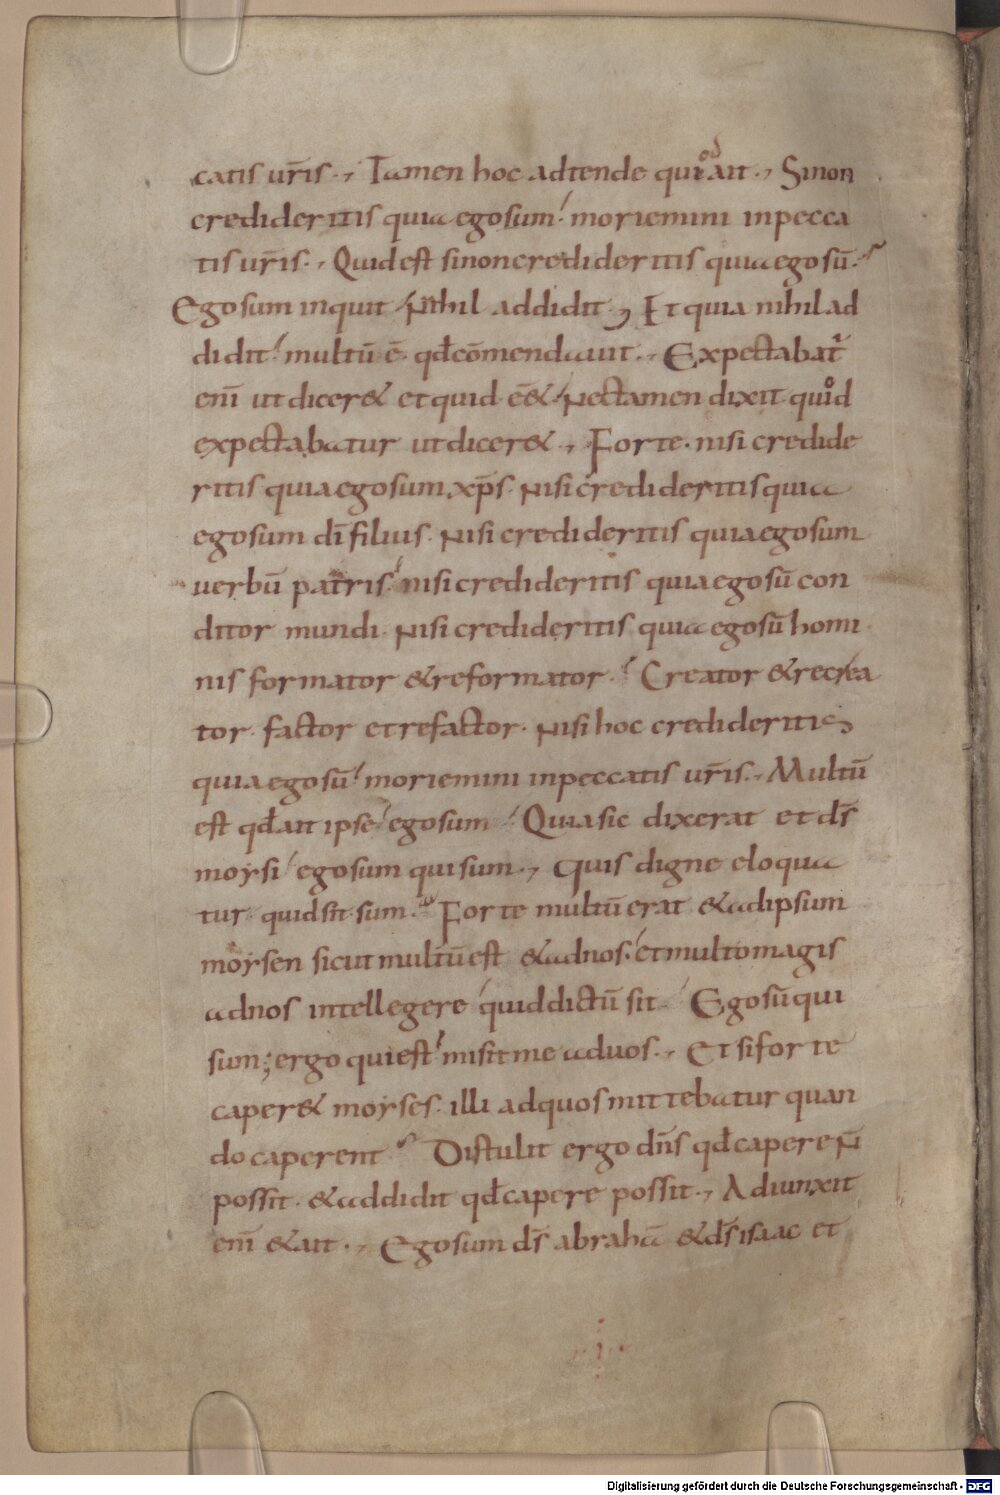 catis ur̄is ., Tamen hoc adtende quid ait ., Si non
credideritis quia ego sum / moriemini in pecca
tis ur̄is ., Quid est si non credideritis quia ego sū .
Ego sum inquit / Nihil addidit , Et quia nihil ad
didit / multū ē qđ cōmendauit ., Expectabat̄
enī ut dicer& et quid ēē& / Nec tamen dixit quod
expectabatur ut dicer& ., Forte . nisi credide
ritis quia ego sum xp̄s . Nisi credideritis quia
ego sum dī filius . Nisi credideritis quia ego sum
uerbū patris / nisi credideritis quia ego sū con
ditor mundi . Nisi credideritis quia ego sū homi
nis formator & reformator . Creator & recrea
tor . factor et refactor . Nisi hoc credideritis
quia ego sū / moriemini in peccatis ur̄is ., Multū
est qđ ait ipse / ego sum / Quia sic dixerat et ds̄
moysi / ego sum qui sum ., Quis digne eloqua
tur . quid sit sum . Forte multū erat & ad ipsum
moysen sicut multū est & ad nos . et multo magis
ad nos intellegere quid dictū sit Ego sū qui
sum ; ergo qui est / misit me ad uos ., Et si forte
caper& moyses . illi ad quos mittebatur quan
do caperent Distulit ergo dn̄s qđ capere n̄
possit . & addidit qđ capere possit ., Adiunxit
enī & ait ., Ego sum ds̄ abrahā & ds̄ isaac et
Digitalisierung gefördert durch die Deutsche Forschungsgemeinschaft - DFG